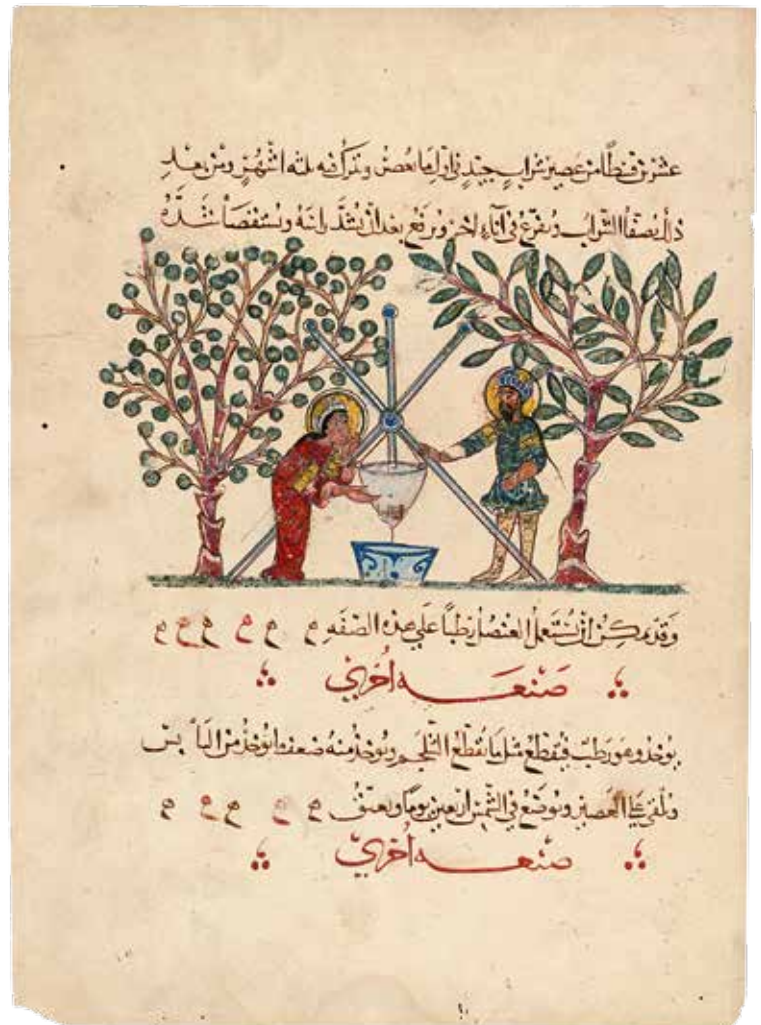 عشرين قسطا من عصير شراب جيد في اول ما يعصر ويترك فيه ثلثه اشهر ومن بعد
ذلك يصفا الشراب ويفرغ في اناء اخر ويرفع بعد ان يشد راسه ويستقصا شده
وقد يمكن ان يستعمل العنصل رطبا على هذه الصفه
صنعه اخرى
يوخذ وهو رطب فيقطع مثل ما يقطع الثلجم ويوخذ منه ضعف ما يوخذ من اليابس
ويلقى عليه العصير ويوضع في الشمس اربعين يوما ويعتق
صنعه اخرى